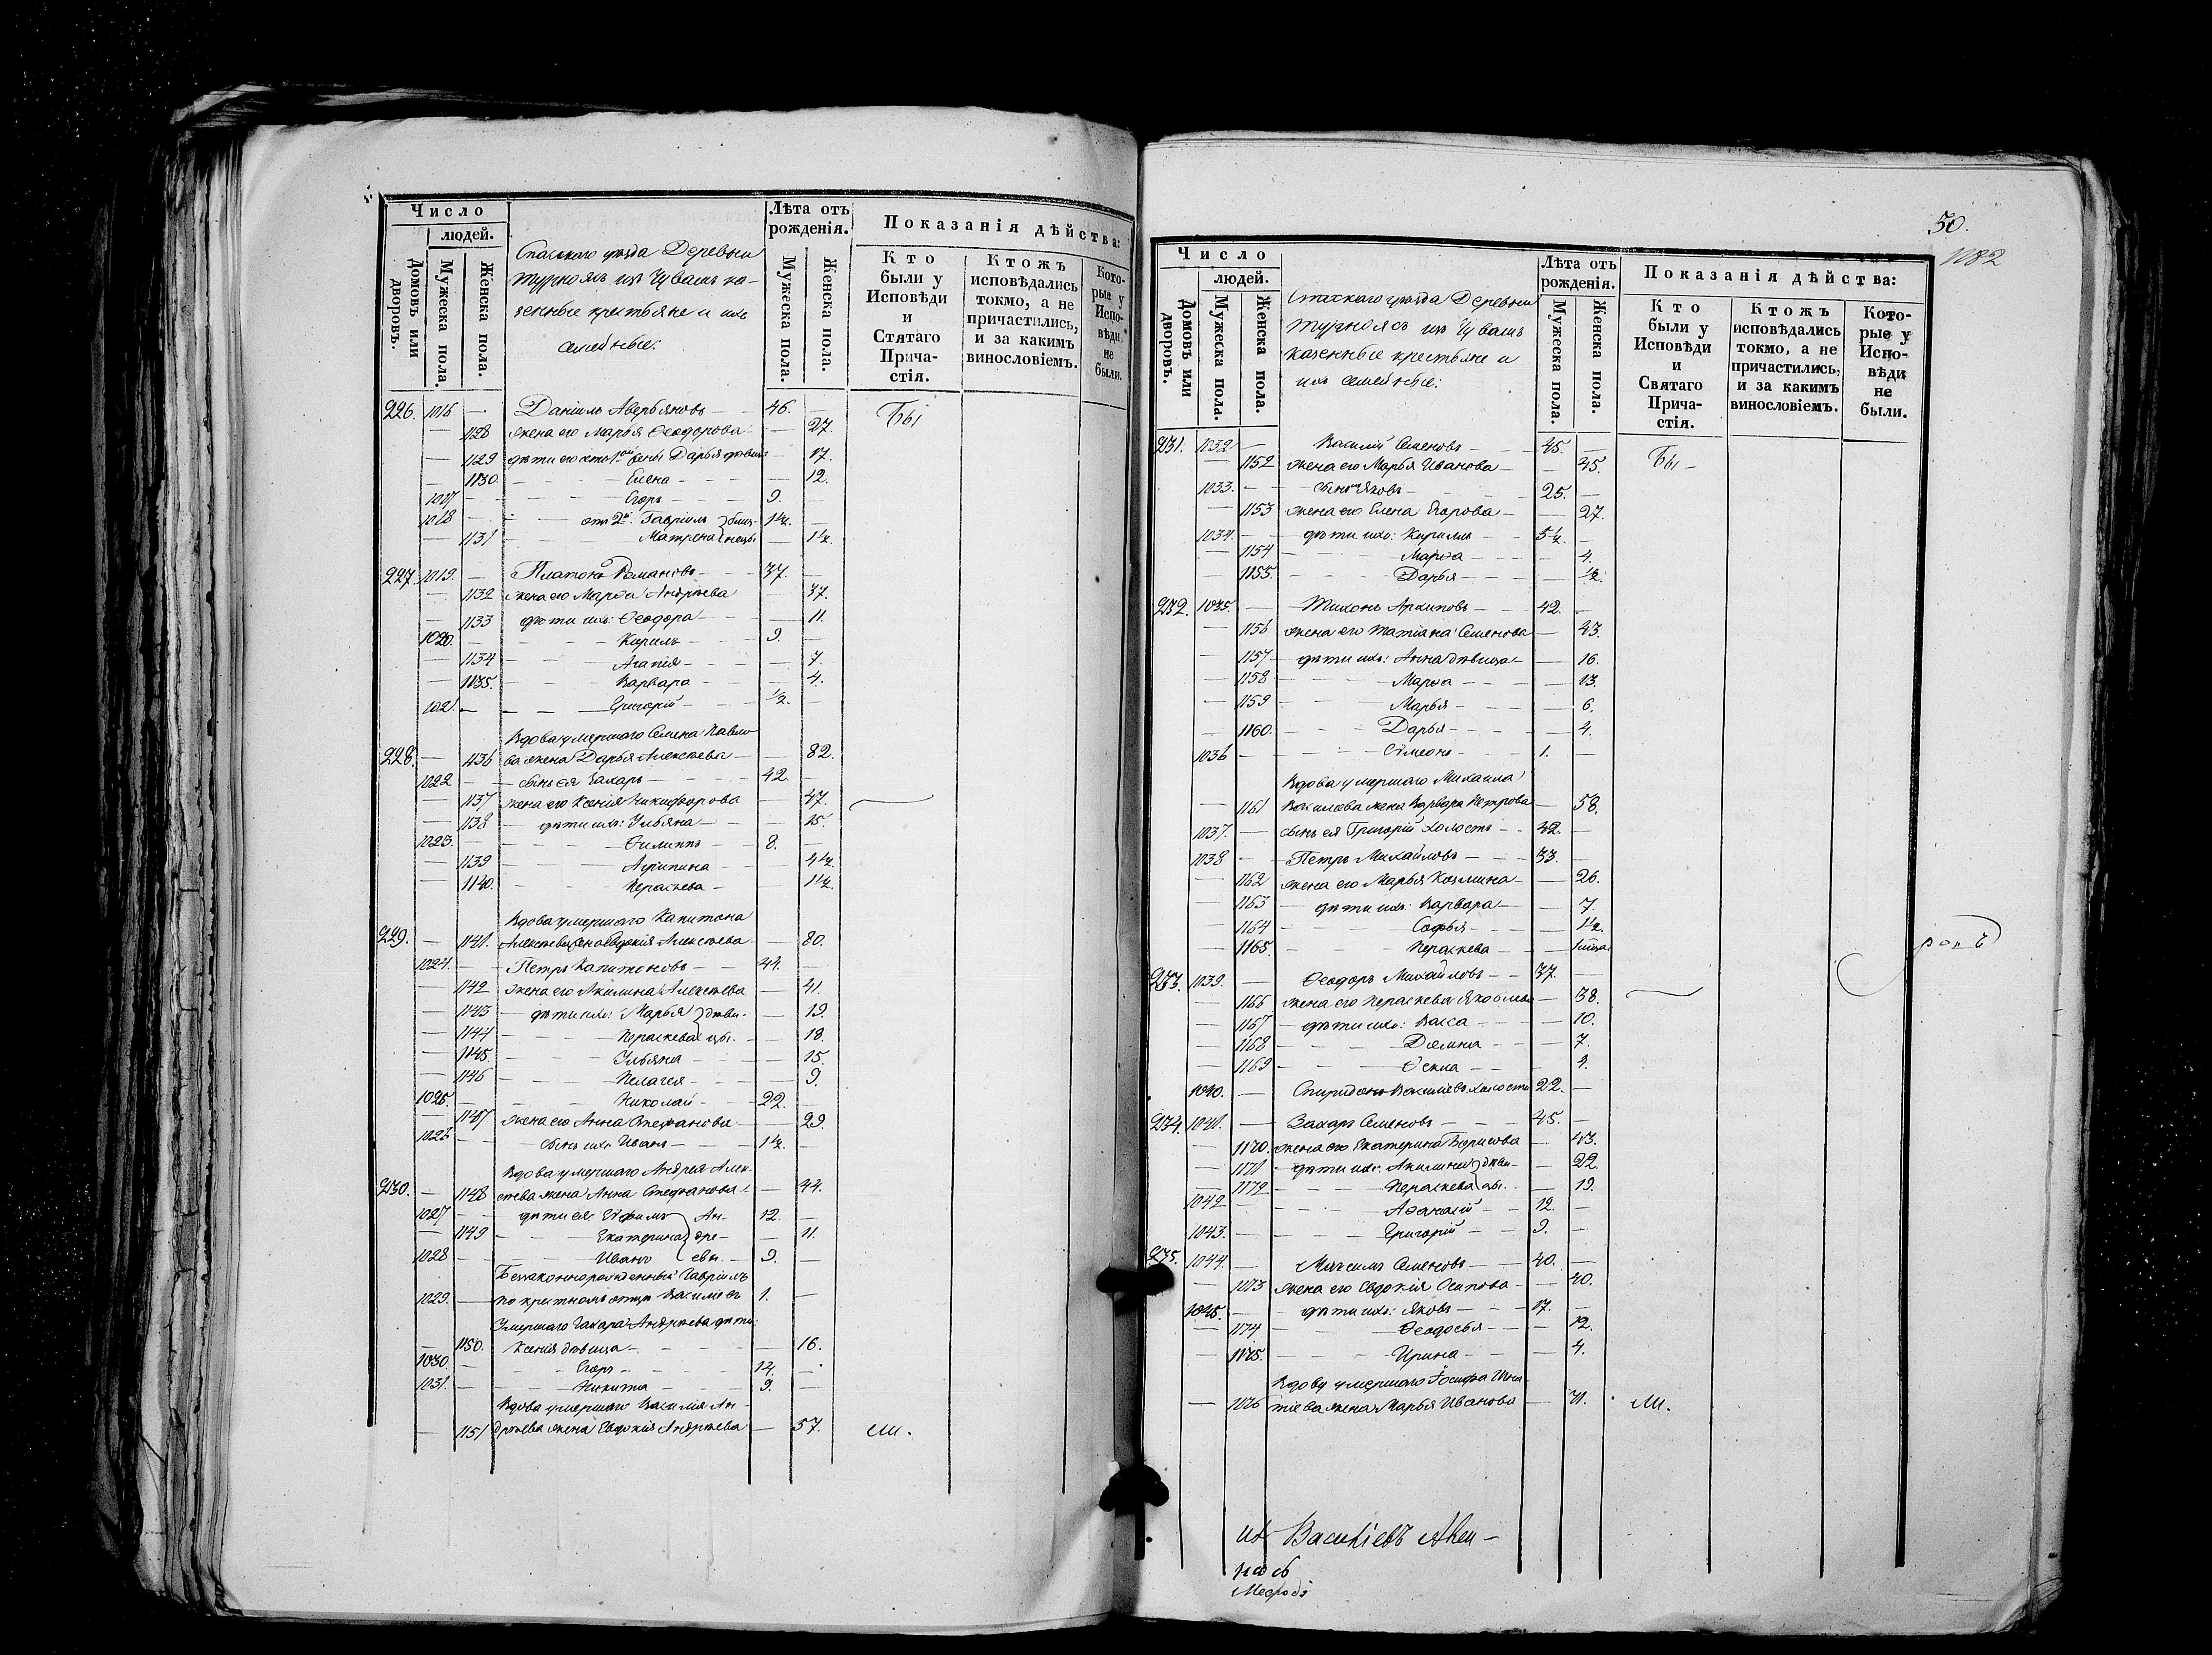 Число
людей.
Домовъ или дворовъ.
Мужеска пола.
Женска пола.
Спаскаго уѣзда Деревни
Турнаясъ изъ Чувашъ ка-
зенные крестьяне и ихъ
семейные:
Лѣта отъ рожденія.
Мужеска пола.
Женска пола.
Показанія дѣйства:
Кто были у Исповѣди и Стятаго Прича-стія.
Ктожъ исповѣдались токмо, а не причастились, и за какимъ винословіемъ.
Кото-рые у Испо-вѣди не были.
226. 1016 — Даніилъ Аверьяновъ — 46. — Бы
— 1128 жена его Марья Ѳеодорова — 27.
— 1129 дѣти его отъ 1ой жены Дарья дѣвица — 17.
— 1130 — Елена — 12.
1017 — Егоръ — 9.
1018 — отъ 2й. Гавріилъ близ- 1½. —
— 1131 — Матрена нецы — 1½.
227. 1019. — Платонъ Романовъ — 37. —
— 1132 жена его Марѳа Андрѣева — 37.
— 1133 дѣти ихъ: Ѳеодора — 11.
1020. — Кирилъ — 9. —
— 1134 — Агапія — 7.
— 1135. — Варвара — 4.
1021. — Григорій — ½. —
Вдова умершаго Семена Павло-
228. — 1136 ва жена Дарья Алексѣева — 82.
1022 — сынъ ея Захаръ — 42. —
— 1137 жена его Ксенія Никифорова — 47.
— 1138 — дѣти ихъ: Ульяна — 15.
1023. — Филиппъ — 8. —
— 1139 — Агрипина — 4½.
— 1140. — Параскева — 1½.
Вдова умершаго Капитона
229. — 1141. Алексѣева жена Евдокія Алексѣева — 80.
1024. — Петръ Капитоновъ — 44. —
— 1142 жена его Акилина Алексѣева — 41.
— 1143 — дѣти ихъ: Марья дѣви- — 19.
— 1144 — Параскева цы. — 18.
— 1145 — Ульяна — 15.
— 1146 — Пелагея — 9.
1025. — Николай — 22. —
— 1147 жена его Анна Стефанова — 29.
1026 — сынъ ихъ Иванъ — 1½. —
Вдова умершаго Андрея Алек-
230. — 1148 сѣева жена Анна Стефанова — 44.
1027 — дѣти ея: Ефимъ Ан- 12. —
— 1149 — Екатерина дре- — 11.
1028 — Иванъ евы. — 9. —
Беззаконнорожденный Гавріилъ
1029. — по крестномъ отцѣ Василіевъ 1. —
Умершаго Захара Андрѣева дѣти:
— 1150. Ксенія дѣвица — 16.
1030. — Егоръ — 14. —
1031. — Никита — 9. —
Вдова умершаго Василія Ан-
— 1151 дрѣева жена Евдокія Андрѣева — 57. ли.
50.
Число
людей.
Домовъ или дворовъ.
Мужеска пола.
Женска пола.
Спаскаго уѣзда Деревни
Турнаясъ изъ Чувашъ
казенные крестьяне и
ихъ семейные:
Лѣта отъ рожденія.
Мужеска пола.
Женска пола.
Показанія дѣйства:
Кто были у Исповѣди и Святаго Прича-стія.
Ктожъ исповѣдались токмо, а не причастились, и за какимъ винословіемъ.
Кото-рые у Испо-вѣди не были.
231. 1032 — Василій Семеновъ — 45. — Бы —
— 1152 жена его Марья Иванова — 45.
1033. — сынъ Яковъ — 25. —
— 1153 жена его Елена Егорова — 27.
1034. — дѣти ихъ: Кирилъ — 5½. —
— 1154 — Марѳа — 4.
— 1155. — Дарья — ½.
232. 1035. — Тихонъ Архиповъ — 42. —
— 1156 жена его Татіана Семенова — 43.
— 1157 — дѣти ихъ: Анна дѣвица — 16.
— 1158 — Марѳа — 13.
— 1159 — Марья — 6.
— 1160. — Дарья — 4.
1036 — Симеонъ — 1. —
Вдова умершаго Михаила
— 1161 Василіева жена Варвара Петрова — 58.
1037. — сынъ ея Григорій холостъ — 42. —
1038 — Петръ Михайловъ — 33. —
— 1162 жена его Марья Козмина — 26.
— 1163 — дѣти ихъ: Варвара — 7.
— 1164 — Софья — 1½.
— 1165. — Параскева —
233. 1039. — Ѳеодоръ Михайловъ — 37. —
— 1166 жена его Параскева Яковлева — 38.
— 1167 — дѣти ихъ: Васса — 10.
— 1168 — Домна — 7.
— 1169 — Ѳекла — 4.
1040. — Спиридонъ Василіевъ холостъ 22. —
234. 1041. — Захаръ Семеновъ — 45. —
— 1170. жена его Екатерина Борисова — 43.
— 1171 — дѣти ихъ: Акилина дѣви- — 22.
— 1172 — Параскева цы. — 19.
1042 — Аѳанасій — 12. —
1043. — Григорій — 9. —
235. 1044. — Максимъ Семеновъ — 40. —
— 1173 жена его Евдокія Осипова — 40.
1045. — дѣти ихъ: Яковъ — 17. —
— 1174 — Ѳеодосья — 12.
— 1175. — Ирина — 4.
Вдова умершаго Іосифа Игна-
— 1176 тіева жена Марья Иванова — 71. ли.
Василіевъ